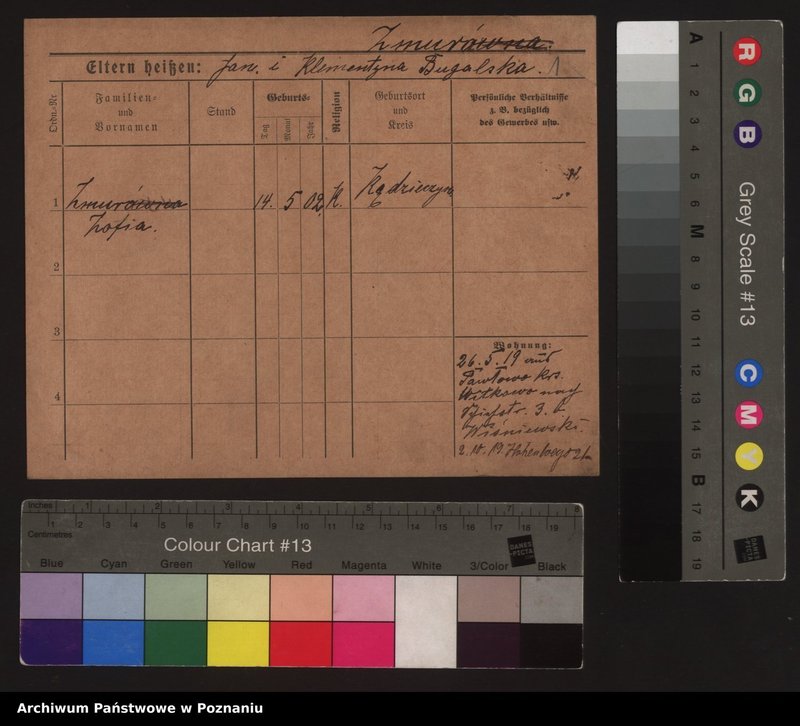 Zmurówna.
Eltern heißen: Jan. i Klimentyna Bugalska. 1
Ordn.-Nr
Familien-
und
Vornamen
Stand
Geburts-
Tag
Monat
Jahr
Religion
Geburtsort
und
Kreis
Persönliche Verhältnisse
z. B. bezüglich
des Gewerbes usw.
1 Zmurówna 14. 5 02. K.
Zofia.
2
3
4
Wohnung:
26.5.19 aus
Pawłowo Krs.
Witkowo nach
3. b
Wiśniewski.
2.10.19
Inches 1 2 3 4 5 6 7 8
Centimetres 1 2 3 4 5 6 7 8 9 10 11 12 13 14 15 16 17 18 19
Colour Chart #13
DANES
PICTA
.COM
Blue Cyan Green Yellow Red Magenta White 3/Color Black
A 1 2 3 4 5 6 M 8 9 10 11 12 13 14 15 B 17 18 19
R G B
Grey Scale #13
C M Y K
DANES
PICTA
Archiwum Państwowe w Poznaniu